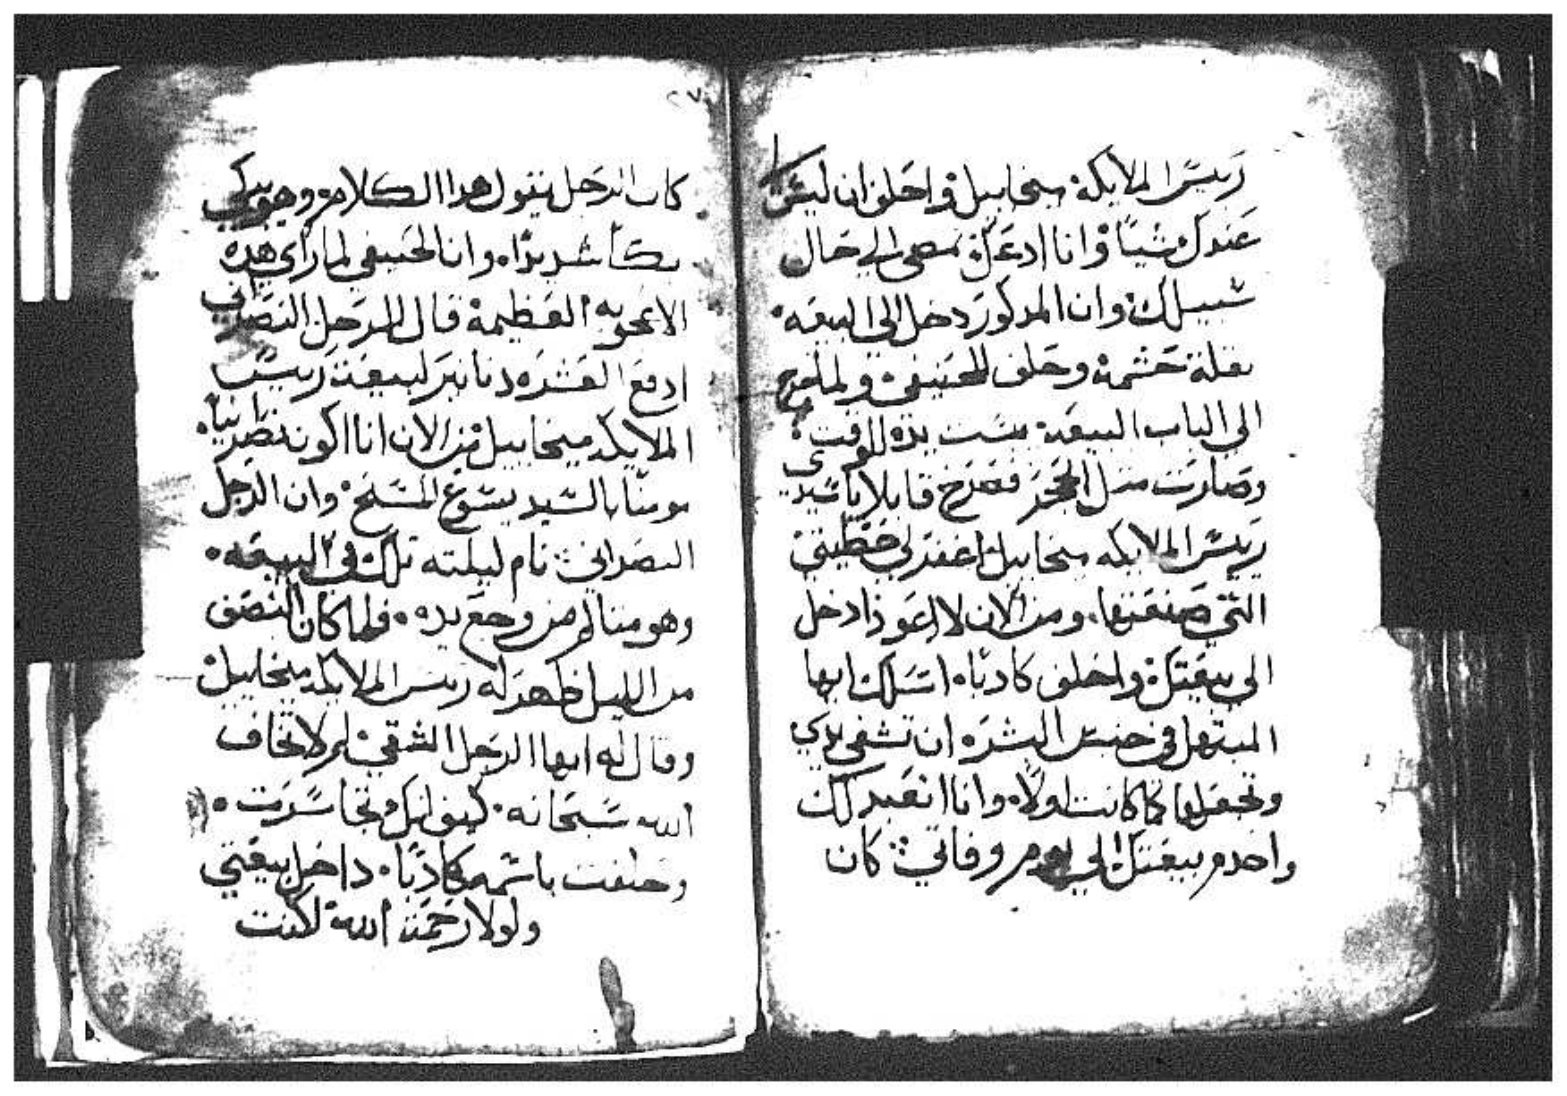 رييس الملايكة ميخاييل واحلف ان ليس لك
عندك شيا وانا ادعك تمضى الى حال
سبيلك وان المدكور دخل الى البيعه
بقلة حشمة وحلف للحنيفي ولما خرج
الى الباب البيعة يبست يده للوقت
وصارت مثل الحجر فصرخ قايلا ياسيدي
رييس الملايكه ميخاييل اغفر لي خطيتي
التي صنعتها ومن الان لا اعود ادخل
الى بيعتك واحلف كادبا اسلك ايها
المبتهل في جنس البشره ان تشفي يدي
وتجعلها كما كانت اولا وانا اتعبد لك
واخدم بيعتك الى يوم وفاتي كان
٢٧
كان الرجل يقول هدا الكلام وهو يبكي
بكا شديدا وانا الحنيفي لما راي هده
الاعجوبه العظيمة قال للرجل النصراني
ادفع العشره دنانير لبيعة رييس
الملايكه ميخاييل من الان انا اكون نصرانيا
مومنا بالسيد يسوع المسيح وان الرجل
النصراني نام ليلته تلك في البيعه
وهو متالم من وجع يده فلما كان النصف
من الليل ظهر له رييس الملايكه ميخاييل
وقال له ايها الرجل الشقي لم لا تخاف
الله سبحانه كيف انك تجاسرت
وحلفت باسمه كادبا داخل بيعتي
ولولا رحمة الله لكنت